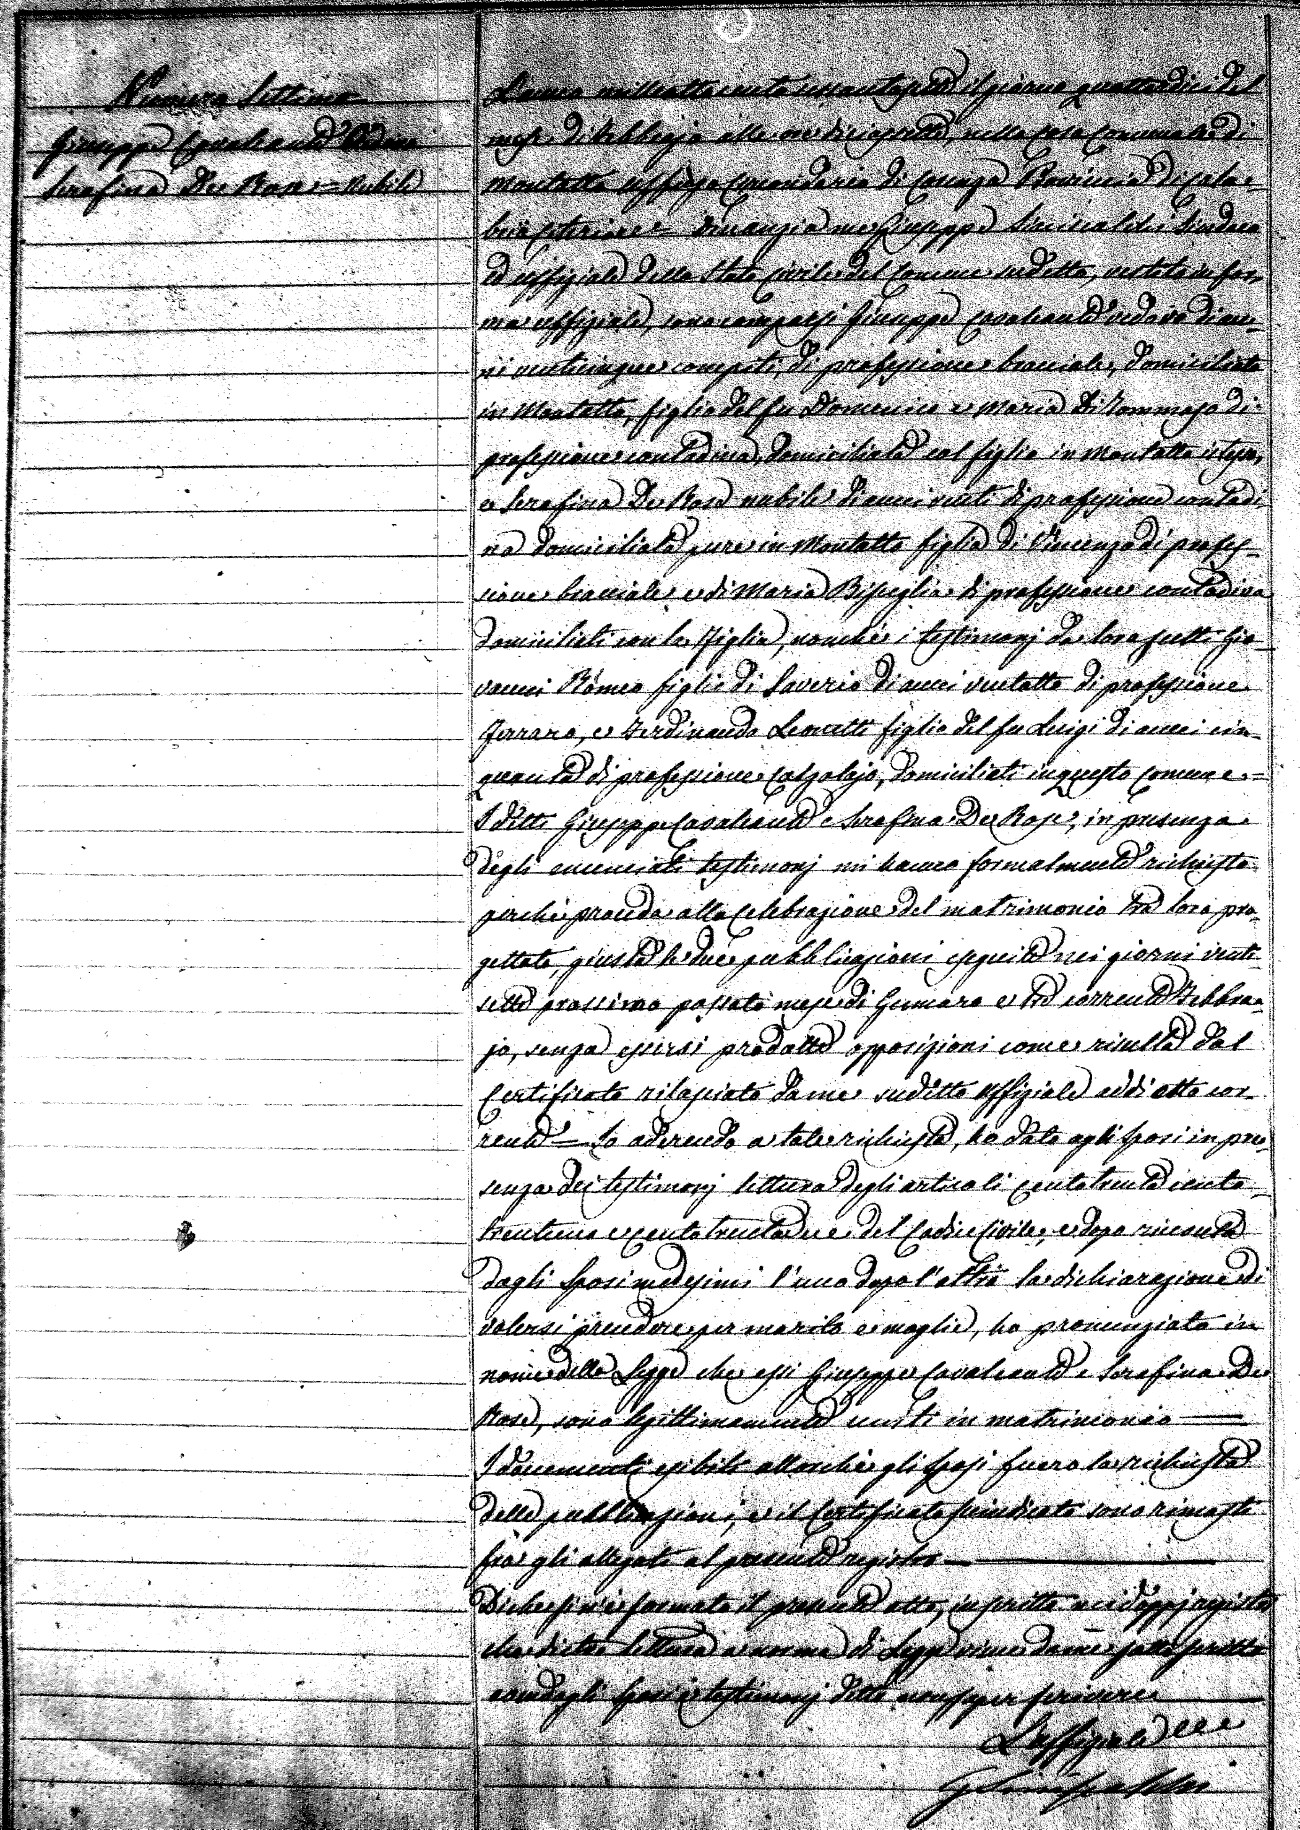 Numero Settimo
Giuseppe Cavalcante Vedovo
Serafina De Rose = Nubile
L'anno milleottocento sessantasette il giorno quattordici del
mese di Febbrajo alle ore diciassette, nella Casa Comunale di
Montalto Uffugo Circondario di Cosenza Provincia di Cala-
bria Citeriore = Dinanzi a me Giuseppe Sindaco
ed uffiziale dello Stato Civile del Comune sudetto, vestito in for-
ma uffiziale, sono comparsi Giuseppe Cavalcante vedovo di an-
ni venticinque compiti, di professione bracciale, domiciliato
in Montalto, figlio del fu Domenico e Maria Di Tommaso di
professione contadina, domiciliata col figlio in Montalto istesso,
e Serafina De Rose nubile di anni venti di professione contadi-
na domiciliata pure in Montalto figlia di Vincenzo di profes-
sione bracciale e di Maria Bisceglia di professione contadina
domiciliati con la Figlia, nonchè i testimonj da loro scelti Gio-
vanni Romeo figlio di Saverio di anni ventotto di professione
Ferraro, e Ferdinando Leonetti figlio del fu Luigi di anni cin-
quanta di professione Calzolajo, domiciliati in questo Comune =
I detti Giuseppe Cavalcante e Serafina De Rose, in presenza
degli enunciati testimonj mi hanno formalmente richiesto
perchè proceda alla Celebrazione del matrimonio tra loro pro-
gettato, giusta le due pubblicazioni eseguite nei giorni venti-
sette prossimo passato mese di Gennaro e tre corrente Febbra-
jo, senza essersi prodotte opposizioni come risulta dal
Certificato rilasciato da me sudetto Uffiziale addì otto cor-
rente = Io aderendo a tale richiesta, ho dato agli sposi in pre-
senza dei testimonj lettura degli articoli centotrenta cento-
trentuno e centotrentadue del Codice Civile, e dopo ricevuta
dagli Sposi medesimi l'uno dopo l'altra la dichiarazione di
volersi prendere per marito e moglie, ho pronunziato in
nome della Legge che essi Giuseppe Cavalcante e Serafina De
Rose, sono legittimamente uniti in matrimonio
I documenti esibiti allorchè gli sposi fuero la richiesta
delle pubblicazioni, e il Certificato sindicato sono rimasti
fra gli allegati al presente registro
Di che si è formato il presente atto, inscritto nei doppj registri
che dietro lettura a norma di Legge viene da me sottoscritto
avendo gli sposi e testimonj detto non saper scrivere
L'uffiziale